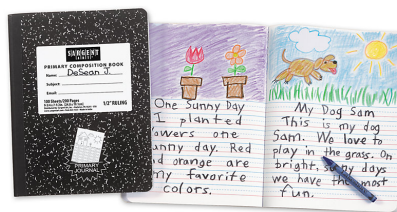 SARGENT
PRIMARY COMPOSITION BOOK
Name: DeSean J.
Subject:
Email:
100 Sheets/200 Pages
1/2" RULING
PRIMARY
JOURNAL
One Sunny Day
I planted
owers one
nny day. Red
nd orange are
my favorite
colors.
My Dog Sam
This is my dog
Sam. We love to
play in the grass. On
bright, su y days
we have the most
fun.